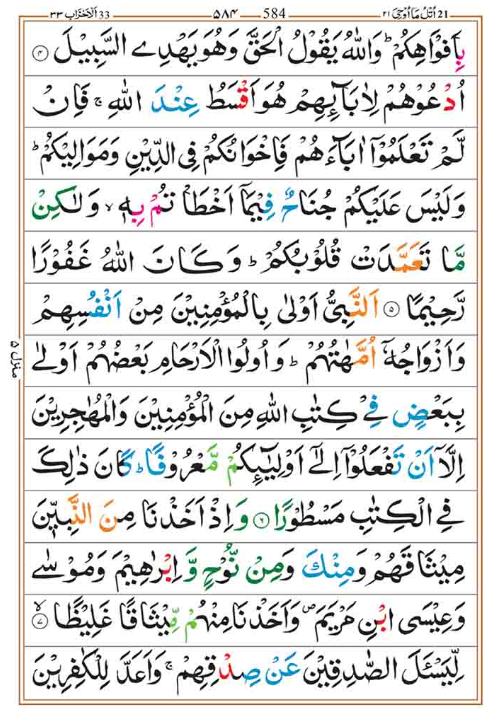 اَلْاَحْزَاب 33 ٣٣ 584 ٥٨٤ اُتْلُ مَآ اُوْحِيَ 21 ٢١
بِاَفْوَاهِكُمْ ؕ وَاللّٰهُ يَقُوْلُ الْحَقَّ وَهُوَ يَهْدِي السَّبِيْلَ ﴿۴﴾
اُدْعُوْهُمْ لِاٰبَآئِهِمْ هُوَ اَقْسَطُ عِنْدَ اللّٰهِ ۚ فَاِنْ
لَّمْ تَعْلَمُوْۤا اٰبَآءَهُمْ فَاِخْوَانُكُمْ فِي الدِّيْنِ وَمَوَالِيْكُمْ ؕ
وَلَيْسَ عَلَيْكُمْ جُنَاحٌ فِيْمَاۤ اَخْطَاْتُمْ بِهٖ ۙ وَلٰكِنْ
مَّا تَعَمَّدَتْ قُلُوْبُكُمْ ؕ وَكَانَ اللّٰهُ غَفُوْرًا
رَّحِيْمًا ﴿۵﴾ اَلنَّبِيُّ اَوْلٰى بِالْمُؤْمِنِيْنَ مِنْ اَنْفُسِهِمْ
وَاَزْوَاجُهٗۤ اُمَّهٰتُهُمْ ؕ وَاُولُوا الْاَرْحَامِ بَعْضُهُمْ اَوْلٰى
بِبَعْضٍ فِيْ كِتٰبِ اللّٰهِ مِنَ الْمُؤْمِنِيْنَ وَالْمُهٰجِرِيْنَ
اِلَّاۤ اَنْ تَفْعَلُوْۤا اِلٰۤى اَوْلِيٰٓئِكُمْ مَّعْرُوْفًا ؕ كَانَ ذٰلِكَ
فِي الْكِتٰبِ مَسْطُوْرًا ﴿۶﴾ وَاِذْ اَخَذْنَا مِنَ النَّبِيّٖنَ
مِيْثَاقَهُمْ وَمِنْكَ وَمِنْ نُّوْحٍ وَّاِبْرٰهِيْمَ وَمُوْسٰى
وَعِيْسَى ابْنِ مَرْيَمَ ۪ وَاَخَذْنَا مِنْهُمْ مِّيْثَاقًا غَلِيْظًا ﴿ۙ۷﴾
لِّيَسْئَلَ الصّٰدِقِيْنَ عَنْ صِدْقِهِمْ ۚ وَاَعَدَّ لِلْكٰفِرِيْنَ
منزل ۵